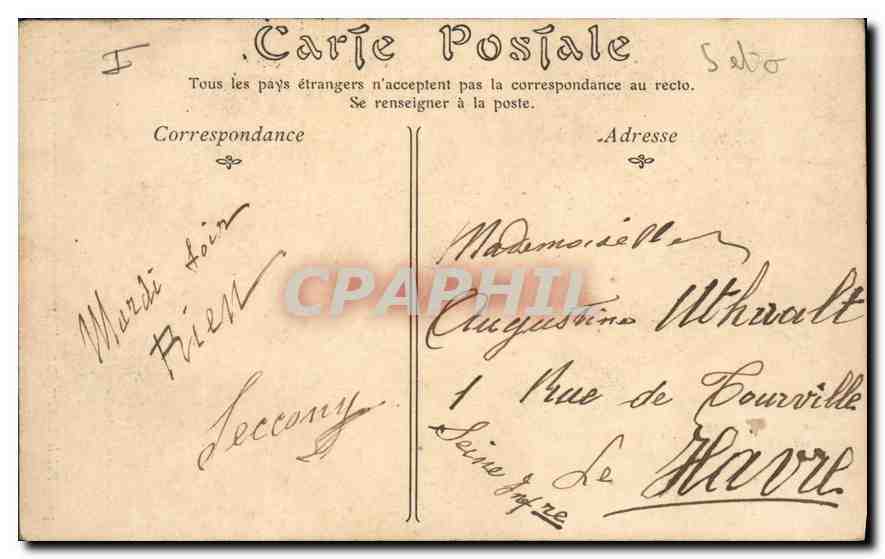 I
Carte Postale
Tous les pays étrangers n'acceptent pas la correspondance au recto.
Se renseigner à la poste.
Correspondance
Mardi soir
Rien
Seccony
Adresse
Mademoiselle
Augustine
1 Rue de Tourville
Le Havre
Seine Infre
CPAPHIL